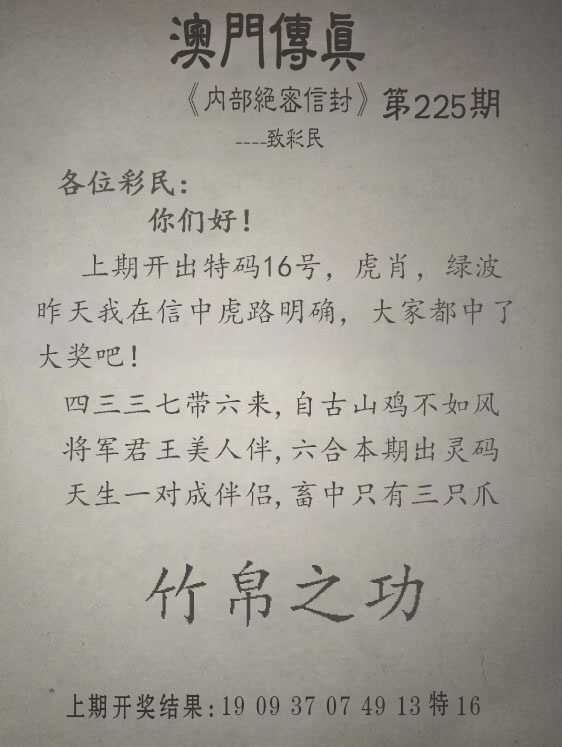 澳門傳眞
《内部絕密信封》第225期
----致彩民
各位彩民：
你们好！
上期开出特码16号，虎肖，绿波
昨天我在信中虎路明确，大家都中了
大奖吧！
四三三七带六来,自古山鸡不如风
将军君王美人伴,六合本期出灵码
天生一对成伴侣,畜中只有三只爪
竹帛之功
上期开奖结果:19 09 37 07 49 13特16